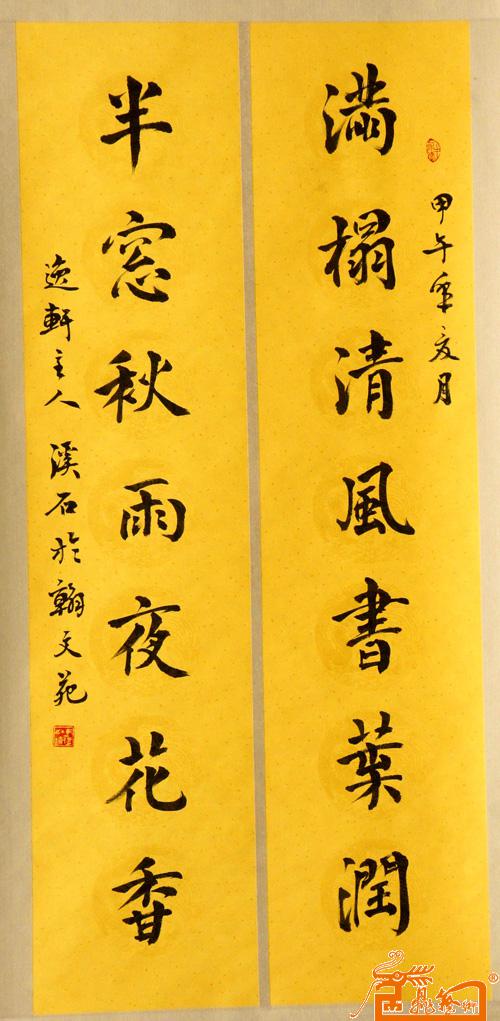 甲午年夏月
满榻清風書葉潤
半窓秋雨夜花香
逸軒主人 溪石於翰文苑